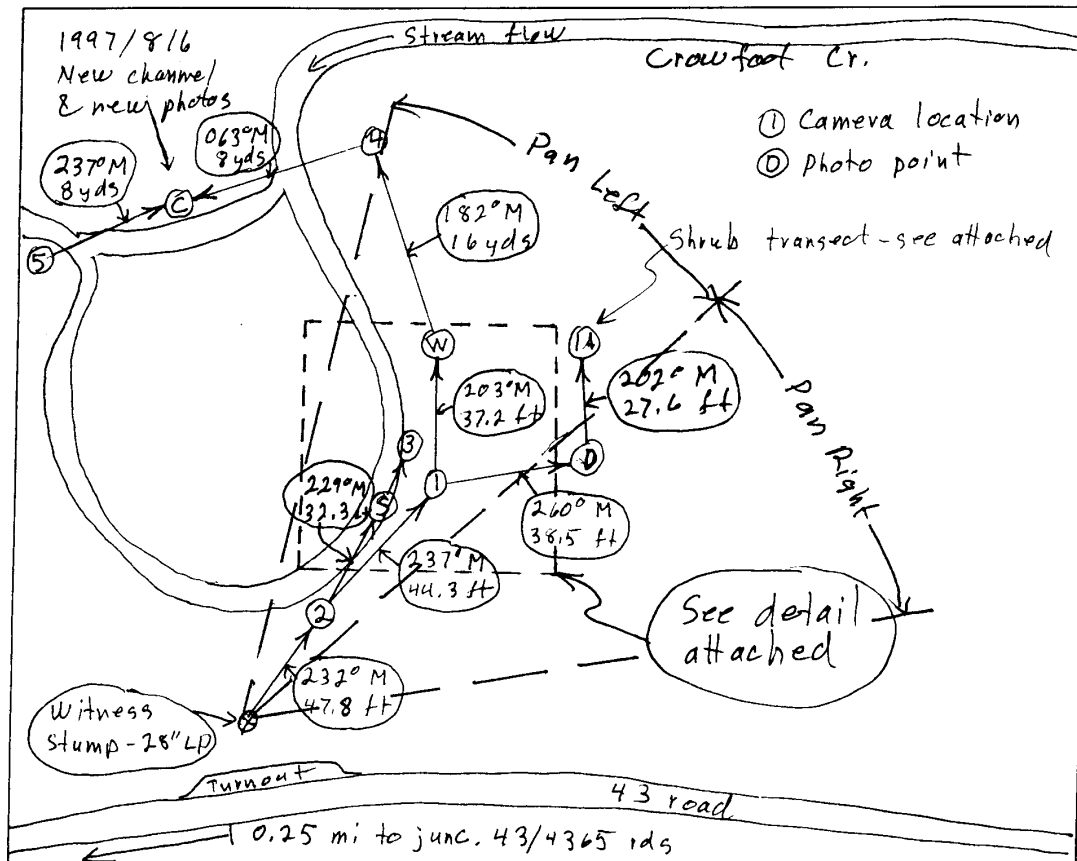 1997/8/6
New channel
& new photos
Stream flow
Crowfoot Cr.
① Camera location
Ⓓ Photo point
237°M
8 yds
063°M
8 yds
C
5
4
Pan Left
182°M
16 yds
Shrub transect - see attached
W
1A
203°M
37.2 ft
202° M
27.6 ft
Pan Right
3
1
D
229°M
32.3 ft
S
260°M
38.5 ft
237°M
44.3 ft
2
See detail
attached
232° M
47.8 ft
Witness
Stump - 28" LP
Turnout
43 road
0.25 mi to junc. 43/4365 rds